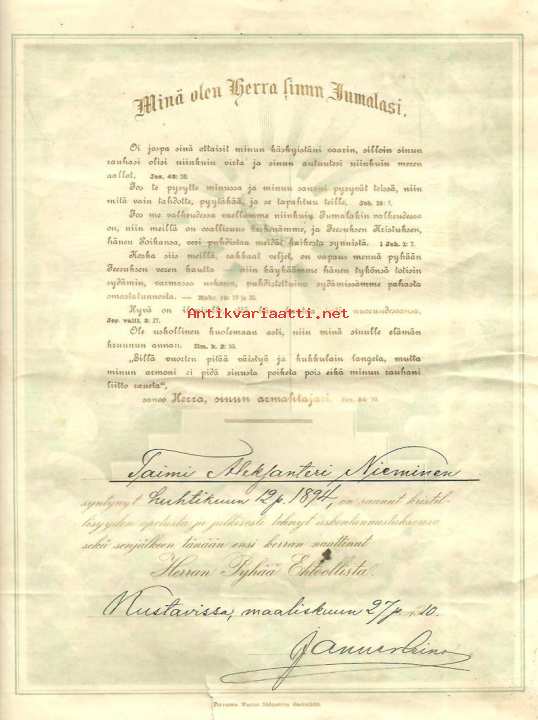 Minä olen Herra sinun Jumalasi.
Oi jospa sinä ottaisit minun käskyistäni vaarin, silloin sinun
rauhasi olisi niinkuin virta ja sinun autuutesi niinkuin meren
aallot. Jes. 48: 18.
Jos te pysytte minussa ja minun sanani pysyvät teissä, niin
mitä vain tahdotte, pyytäkää, ja se tapahtuu teille. Joh. 15: 7.
Jos me valkeudessa vaellamme niinkuin Jumalakin valkeudessa
on, niin meillä on osallisuus keskenämme, ja Jeesuksen Kristuksen,
hänen Poikansa, veri puhdistaa meidät kaikesta synnistä. 1 Joh. 1: 7.
Koska siis meillä, rakkaat veljet, on vapaus mennä pyhään
Jeesuksen veren kautta — niin käykäämme hänen tykönsä totisin
sydämin, varmassa uskossa, puhdistettuina sydämissämme pahasta
omastatunnosta. — Hebr. 10: 19 ja 22.
Hyvä on nuoruudessansa.
Jer. valit. 3: 27.
Antikvariaatti.net
Ole uskollinen kuolemaan asti, niin minä sinulle elämän
kruunun annan. Ilm. k. 2: 10.
„Sillä vuorten pitää väistyä ja kukkulain langeta, mutta
minun armoni ei pidä sinusta poiketa pois eikä minun rauhani
liitto raueta“,
sanoo Herra, sinun armahtajasi. Jes. 54: 10.
Taimi Aleksanteri Nieminen
syntynyt huhtikuun 12 p. 1894, on saanut kristil-
lisyyden opetusta ja julkisesti tehnyt uskontunnustuksensa
sekä senjälkeen tänään ensi kerran nauttinut
Herran Pyhää Ehtoollista.
Kustavissa, maaliskuun 27 p. 10.